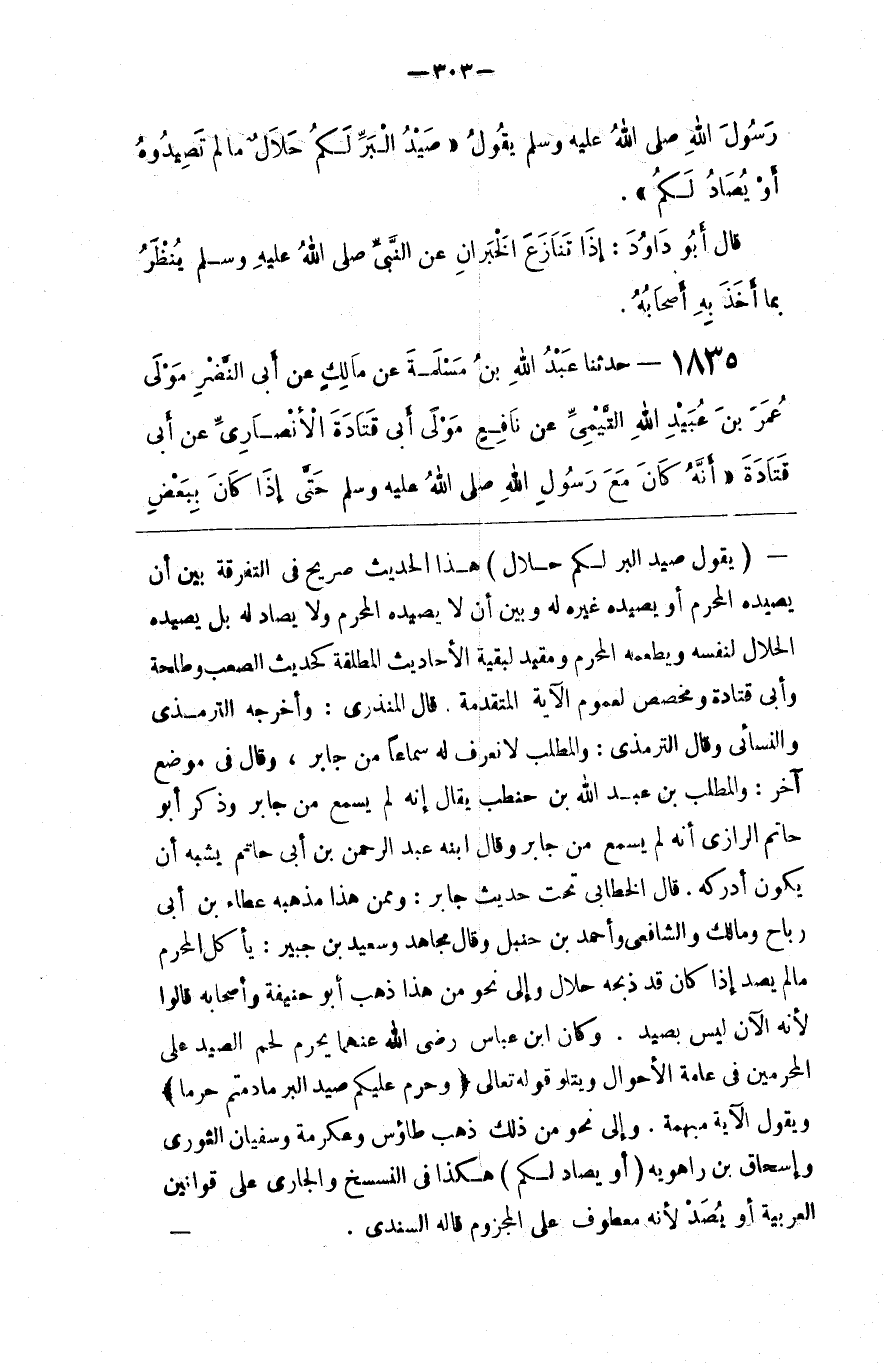 —٣٠٣—
رَسُولَ اللهِ صلى اللهُ عليه وسلم يقُولُ « صَيْدُ الْبَرِّ لَكمُ حَلَالٌ مالم تَصِيدُوهُ
أَوْ يُصَادُ لَكمُ » .
قال أَبُو دَاوُدَ : إِذَا تَنَازَعَ الْخَبَرانِ عن النَّبىِّ صلى اللهُ عليهِ وسلم يُنْظَرُ
بما أَخَذَ بِهِ أَصحَابُهُ .
١٨٣٥ — حدثنا عَبْدُ اللهِ بنُ مَسْلَمَةَ عن مَالِكٍ عن أَبى النَّضْرِ مَوْلَى
عُمَرَ بنَ عُبَيْدِ اللهِ التَّيْمِىِّ عن نَافِعٍ مَوْلَى أَبى قَتَادَةَ الْأَنْصَارِىِّ عن أَبى
قَتَادَةَ « أَنَّهُ كَانَ مَعَ رَسُولِ اللهِ صلى اللهُ عليه وسلم حَتَّى إِذَا كَانَ بِبَعْضِ
— ( يقول صيد البر لكم حلال ) هذا الحديث صريح فى التفرقة بين أن
يصيده المحرم أو يصيده غيره له وبين أن لا يصيده المحرم ولا يصاد له بل يصيده
الحلال لنفسه ويطعمه المحرم ومقيد لبقية الأحاديث المطلقة كحديث الصعب وطلحة
وأبى قتادة ومخصص لعموم الآية المتقدمة . قال المنذرى : وأخرجه الترمذى
والنسائى وقال الترمذى : والمطلب لانعرف له سماعاً من جابر ، وقال فى موضع
آخر : والمطلب بن عبد الله بن حنطب يقال إنه لم يسمع من جابر وذكر أبو
حاتم الرازى أنه لم يسمع من جابر وقال ابنه عبد الرحمن بن أبى حاتم يشبه أن
يكون أدركه . قال الخطابى تحت حديث جابر : وممن هذا مذهبه عطاء بن أبى
رباح ومالك والشافعى وأحمد بن حنبل وقال مجاهد وسعيد بن جبير : يأكل المحرم
مالم يصد إذا كان قد ذبحه حلال وإلى نحو من هذا ذهب أبو حنيفة وأصحابه قالوا
لأنه الآن ليس بصيد . وكان ابن عباس رضى الله عنهما يحرم لحم الصيد على
المحرمين فى عامة الأحوال ويتلو قوله تعالى ﴿ وحرم عليكم صيد البر مادمتم حرما ﴾
ويقول الآية مبهمة . وإلى نحو من ذلك ذهب طاؤس وعكرمة وسفيان الثورى
وإسحاق بن راهويه ( أو يصاد لكم ) هكذا فى النسخ والجارى على قوانين
العربية أو يُصَدْ لأنه معطوف على المجزوم قاله السندى . —